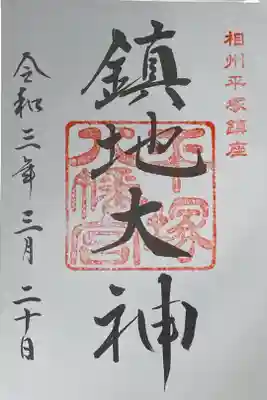 相州平塚鎮座
鎮地大神
平塚八幡宮
令和三年三月二十日